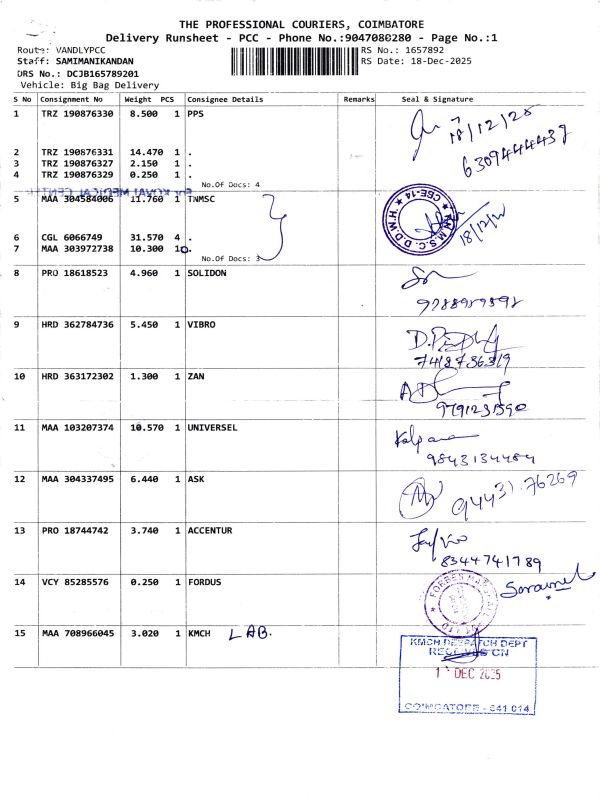 THE PROFESSIONAL COURIERS, COIMBATORE
Delivery Runsheet - PCC - Phone No.:9047080280 - Page No.:1
Route: VANDLYPCC RS No.: 1657892
Staff: SAMIMANIKANDAN RS Date: 18-Dec-2025
DRS No.: DCJB165789201
Vehicle: Big Bag Delivery
S No Consignment No Weight PCS Consignee Details Remarks Seal & Signature
1 TRZ 190876330 8.500 1 PPS
18/12/25
6309444439
2 TRZ 190876331 14.470 1 .
3 TRZ 190876327 2.150 1 .
4 TRZ 190876329 0.250 1 .
No.Of Docs: 4
KOVAI MEDICAL CENTR
5 MAA 304584006 11.760 1 TNMSC
CBE-14
18/12/
6 CGL 6066749 31.570 4 .
7 MAA 303972738 10.300 10.
No.Of Docs: 3
8 PRO 18618523 4.960 1 SOLIDON
9 HRD 362784736 5.450 1 VIBRO
7418736319
10 HRD 363172302 1.300 1 ZAN
9791231590
11 MAA 103207374 10.570 1 UNIVERSEL
Kalpana
9843134484
12 MAA 304337495 6.440 1 ASK
94431.76269
13 PRO 18744742 3.740 1 ACCENTUR
8344741789
14 VCY 85285576 0.250 1 FORDUS
FORBES MARSHALL
15 MAA 708966045 3.020 1 KMCH LAB.
KMCH DESPATCH DEPT
RECEIVED CN
DEC 2025
COIMBATORE - 641 014